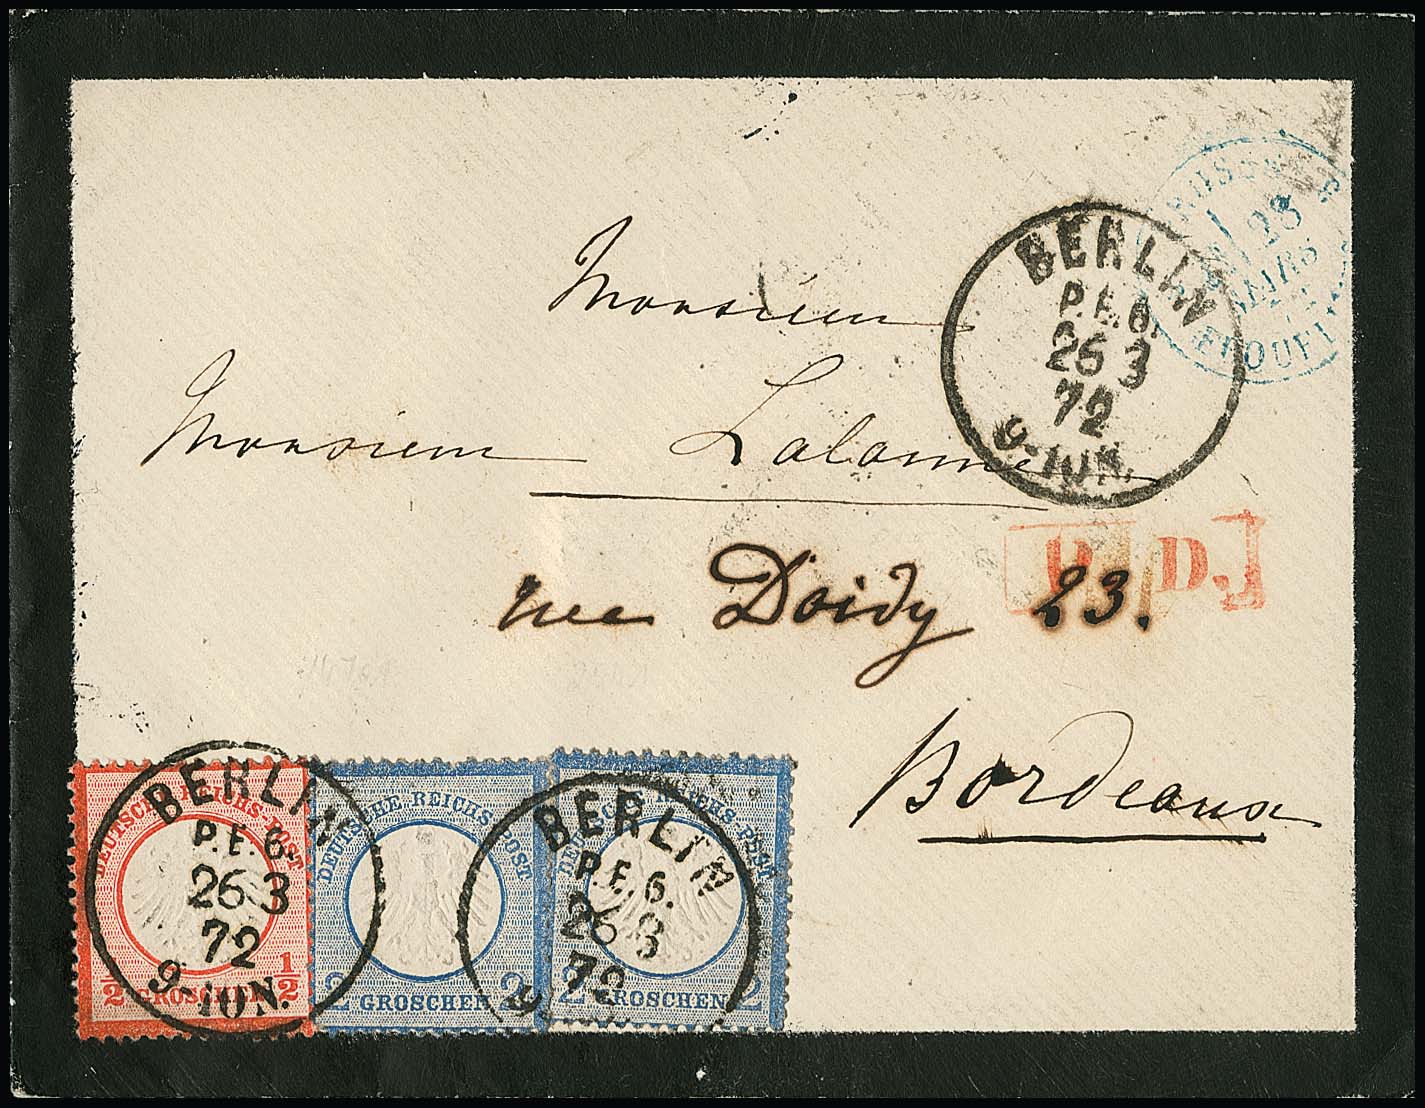 Monsieur
Monsieur Lalanne
rue Doidy 23.
Bordeaux
BERLIN
P.E.6.
26 3
72
9-10N.
28
MARS
D.
DEUTSCHE REICHS-POST
1/2 GROSCHEN 1/2
BERLIN
P.E.6.
26 3
72
9-10N.
DEUTSCHE REICHS-POST
2 GROSCHEN 2
DEUTSCHE REICHS-POST
2 GROSCHEN 2
BERLIN
P.E.6.
26 3
72